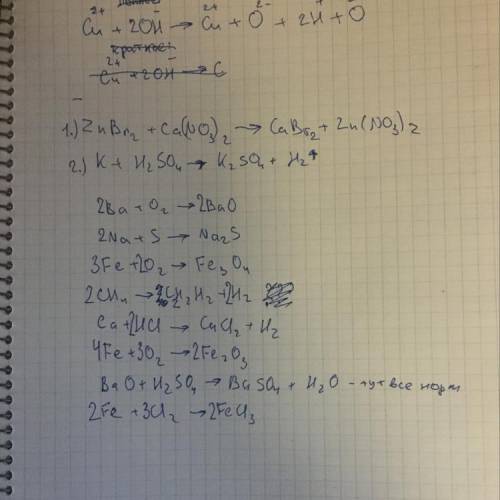 Cu²⁺ + 2OH⁻ → Cu²⁺ + O²⁻ + 2H⁺ + O
краткое:
Cu²⁺ + 2OH⁻ → C
1.) ZnBr₂ + Ca(NO₃)₂ → CaBr₂ + Zn(NO₃)₂
2.) K + H₂SO₄ → K₂SO₄ + H₂↑
2Ba + O₂ → 2BaO
2Na + S → Na₂S
3Fe + 2O₂ → Fe₃O₄
2CH₄ → C₂H₂ + 2H₂
Ca + 2HCl → CaCl₂ + H₂
4Fe + 3O₂ → 2Fe₂O₃
BaO + H₂SO₄ → BaSO₄ + H₂O - тут все норм
2Fe + 3Cl₂ → 2FeCl₃